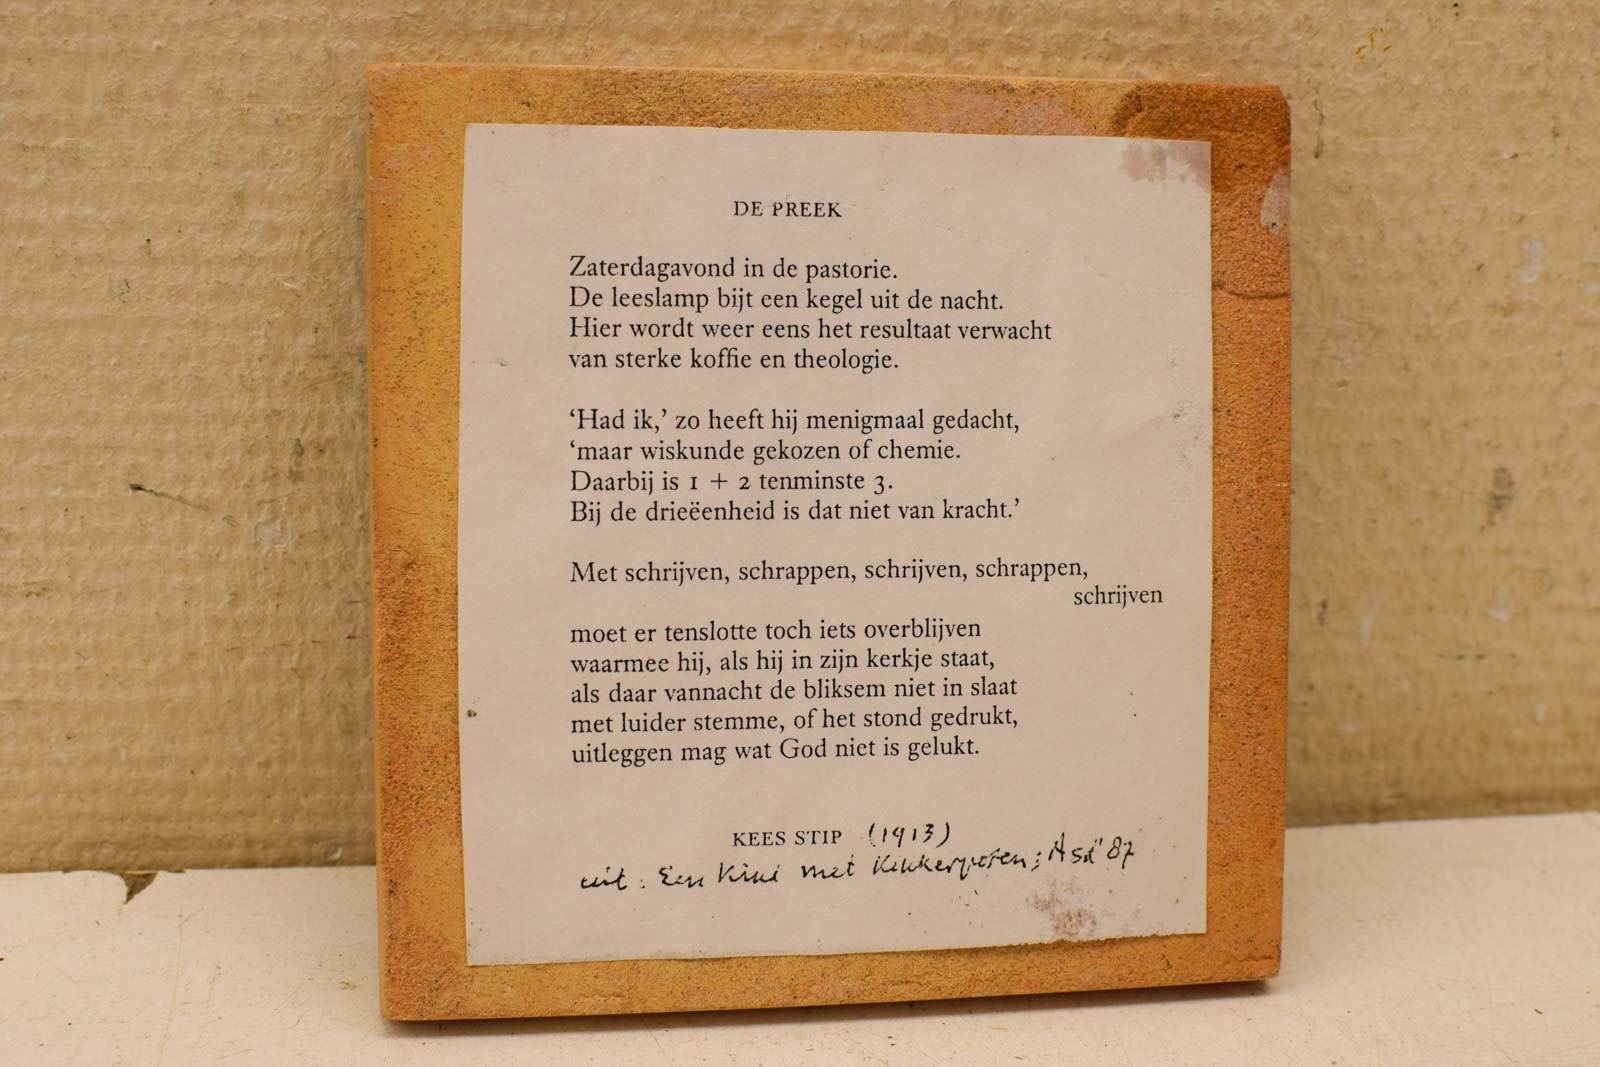 DE PREEK
Zaterdagavond in de pastorie.
De leeslamp bijt een kegel uit de nacht.
Hier wordt weer eens het resultaat verwacht
van sterke koffie en theologie.
‘Had ik,’ zo heeft hij menigmaal gedacht,
‘maar wiskunde gekozen of chemie.
Daarbij is 1 + 2 tenminste 3.
Bij de drieëenheid is dat niet van kracht.’
Met schrijven, schrappen, schrijven, schrappen,
schrijven
moet er tenslotte toch iets overblijven
waarmee hij, als hij in zijn kerkje staat,
als daar vannacht de bliksem niet in slaat
met luider stemme, of het stond gedrukt,
uitleggen mag wat God niet is gelukt.
KEES STIP (1913)
uit: Een Kind met Kikkerpoten; Asd '87